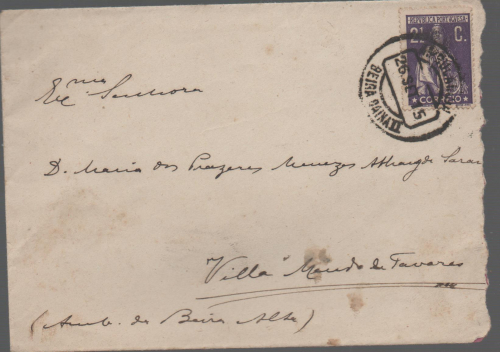 REPUBLICA PORTUGUESA
2½ C.
CORREIO
BEIRA BAIXA II
Exma Senhora
D. Maria dos Prazeres Menezes
Villa Mendo de Tavares
(Amb. da Beira Alta)